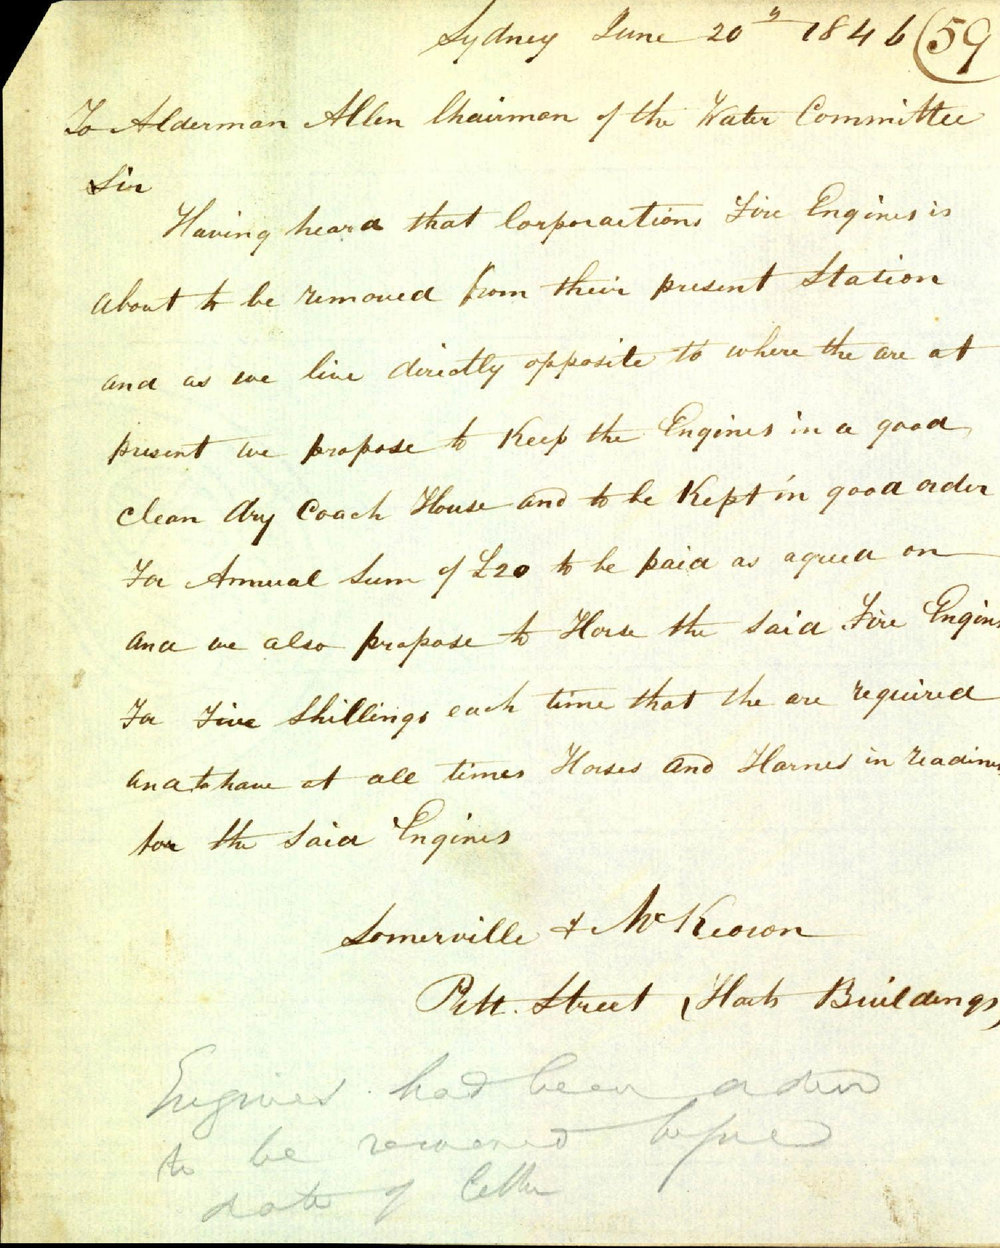 Sydney June 20th 1846 (59
To Alderman Allen Chairman of the Water Committee
Sir
Having heard that Corporaetions Fire Engines is
about to be removed from their present Station
and as we live directly opposite to where the are at
present we propose to Keep the Engines in a good
clean dry Coach House and to be Kept in good order
For Annual Sum of £20 to be paid as agreed on
and we also propose to Horse the Said Fire Engines
For Five Shillings each time that the are required
and to have at all times Horses and Harnes in readines
for the Said Engines
Somerville & McKeown
Pitt. Street (Harts Buildings)
Engines had been order
to be removed before
date of letter